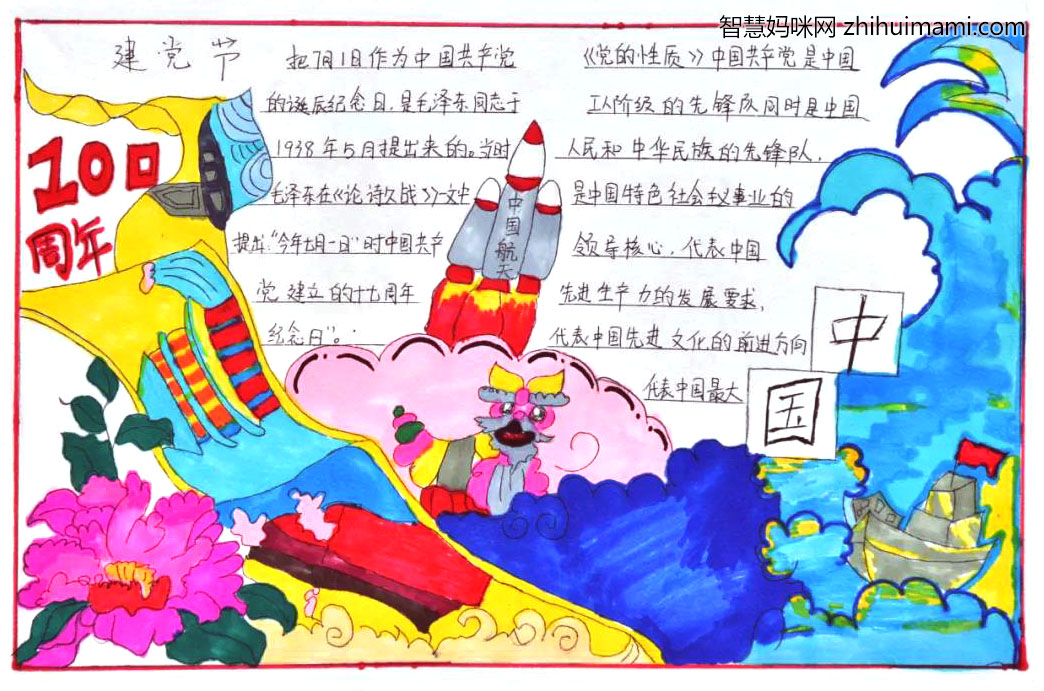 智慧妈咪网 zhihuimami.com
建党节
100
周年
把7月1日作为中国共产党
的诞辰纪念日,是毛泽东同志于
1938年5月提出来的。当时
毛泽东在《论诗久战》一文中
提出"今年七月一日"时中国共产
党建立的十七周年
纪念日"。
《党的性质》中国共产党是中国
工人阶级的先锋队同时是中国
人民和中华民族的先锋队,
是中国特色社会主义事业的
领导核心,代表中国
先进生产力的发展要求,
代表中国先进文化的前进方向
代表中国最大
中国航天
中
国